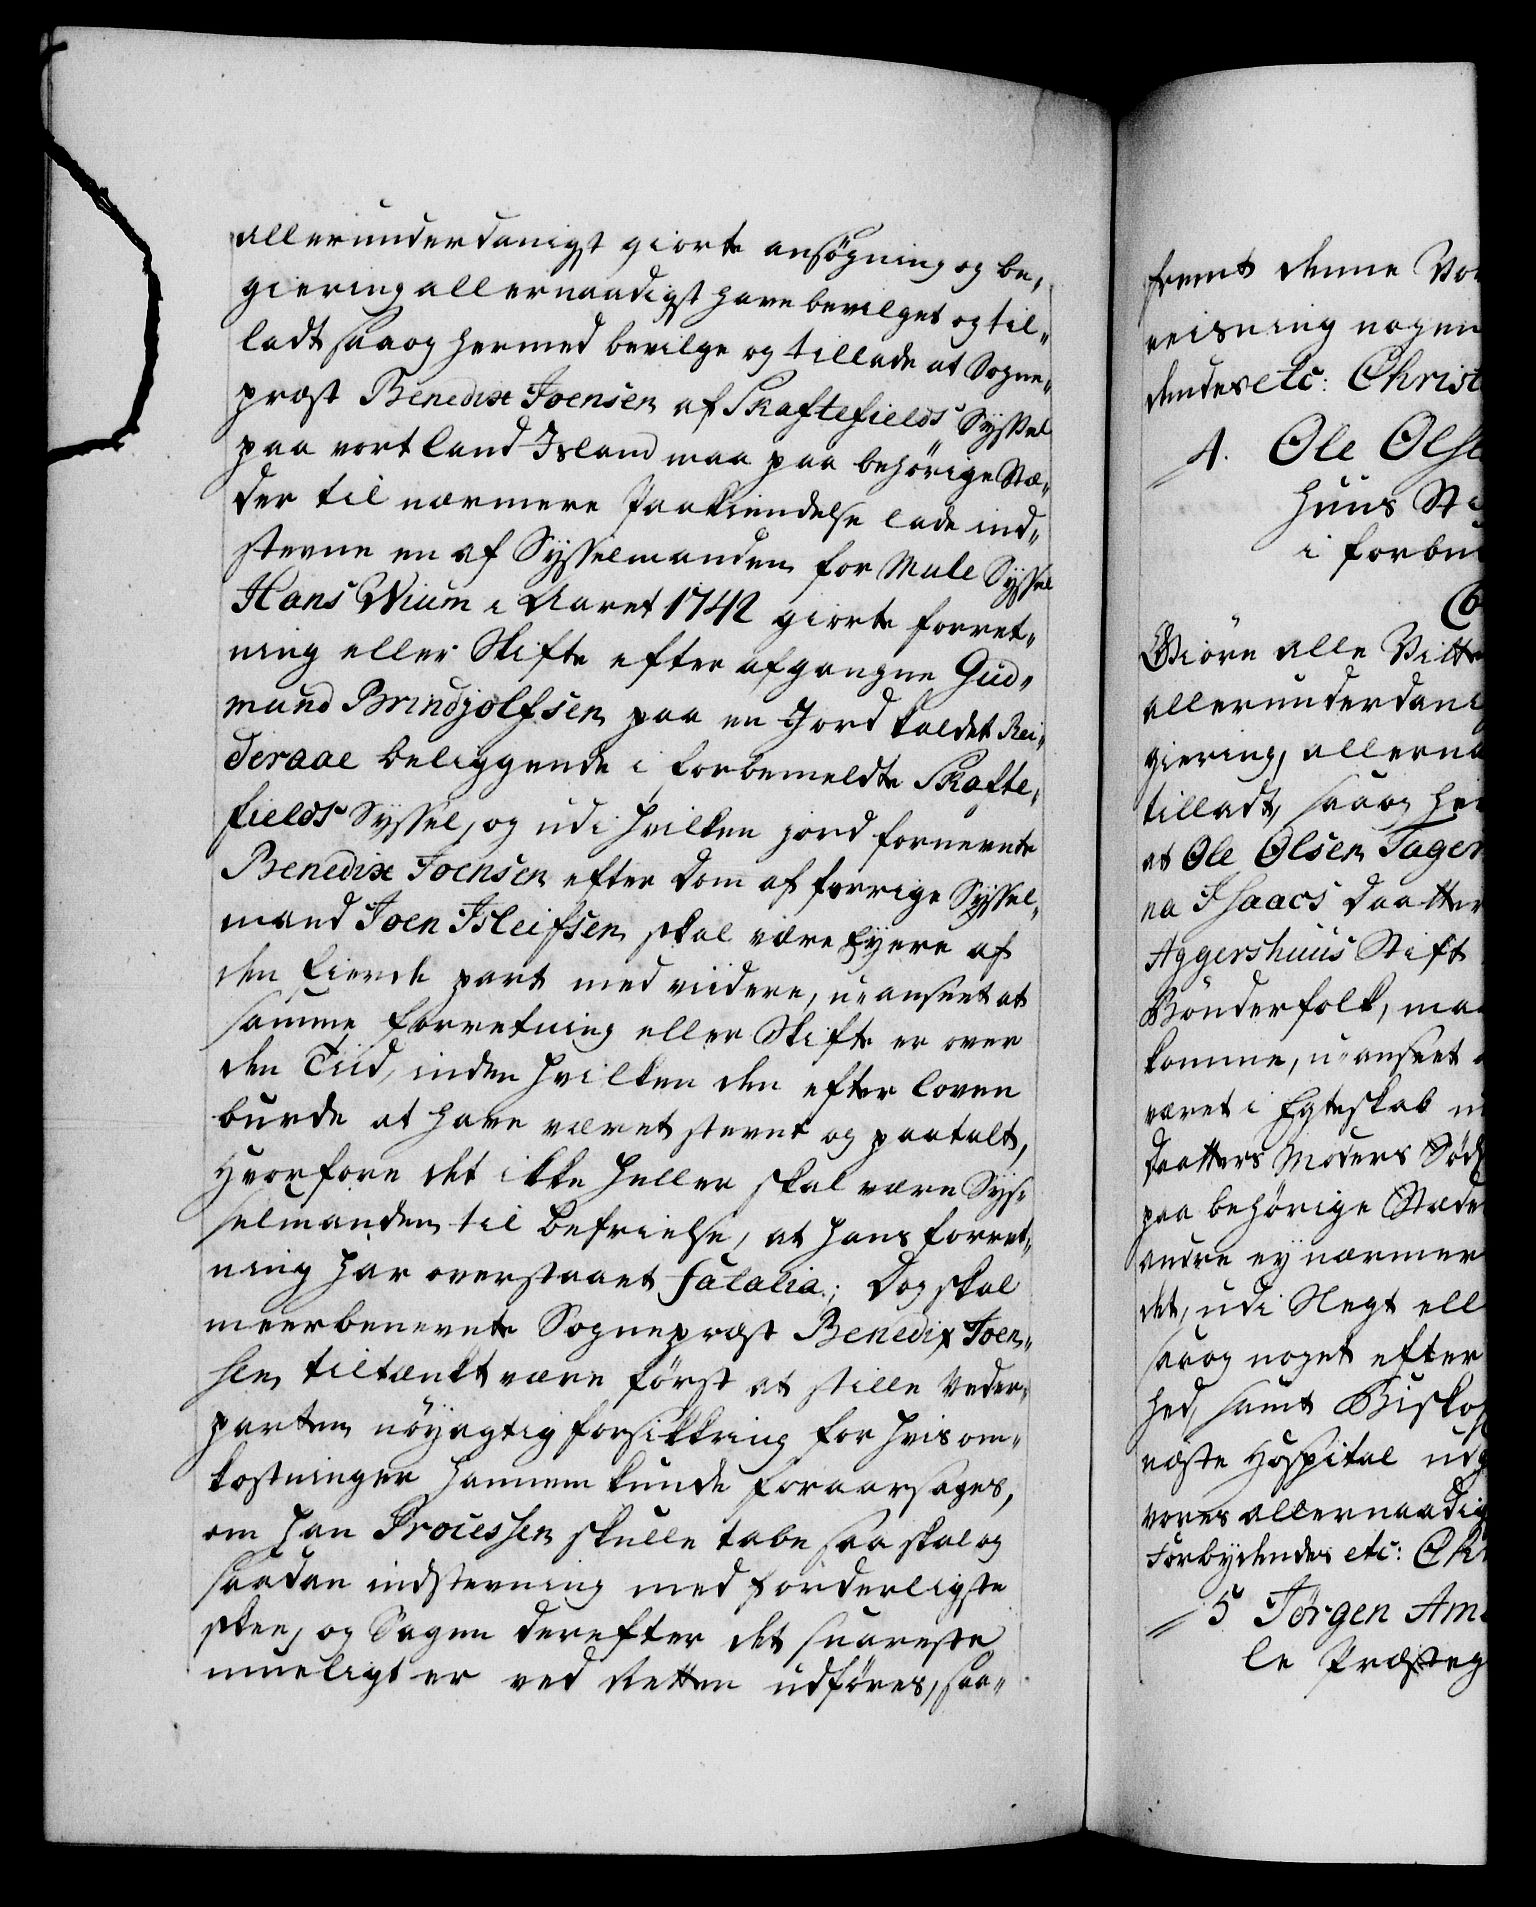 allerunderdanigst giorte ansøgning og be„
giering allernaadigst have bevilget og til„
ladt saa og hermed bevilge og tillade at Sogne„
præst Benedix Joensen af Skaftefields Syssel
paa vort land Island maa paa behörige Stæ„
der til nærmere Paakiendelse lade ind„
stevne en af Sysselmanden for Mule Syssel
Hans Wium i Aaret 1742 giorte forret„
ning eller Skifte efter afgangne Gud„
mund Brindjolfsen paa en Jord kaldet Rei„
deraae beliggende i forbemeldte Skafte„
fields Syssel, og udi hvilken jord fornevnte
Benedix Joensen efter dom af forrige Syssel„
mand Joen Isleifsen skal være Eyere af
den fierde part med viidere, u-anseet at
samme forretning eller Skifte er over
den Tiid, inden hvilken den efter loven
burde at have været stevnt og paatalt,
hvorfore det ikke heller skal være Sys„
selmanden til befrielse, at hans forret„
ning har overstaaet fatalia; dog skal
meerbenevnte Sognepræst Benedix Joen„
sen tiltænkt være først at stille Veder„
parten nöyagtig forsikkring for hvis om„
kostninger hannem kunde foraarsages,
om han Processen skulle tabe saa skal og
saadan indstevning med forderligste
skee, og Sagen derefter det snareste
mueligt er ved Retten udføres, saa„
fremt denne Vo
viisning nogen
dendes etc: Christ
4. Ole Olse
huus Sti
i forbu
Giøre alle Vitter
allerunderdani
giering, allerna
tilladt, saa og her
at Ole Olsen Tager
na Isaacs daatter
Aggershuus Stift
Bönderfolk, maa
komme, u-anseet
været i Egteskab
daatters Moders Sød
paa behörige Stæde
andre ey nærmer
det, udi Slegt ell
saa og noget efter
hed, samt Biskop
næste Hospital udg
vores allernaadig
Forbydendes etc: Chr
5 Jørgen Am
le Præsteg